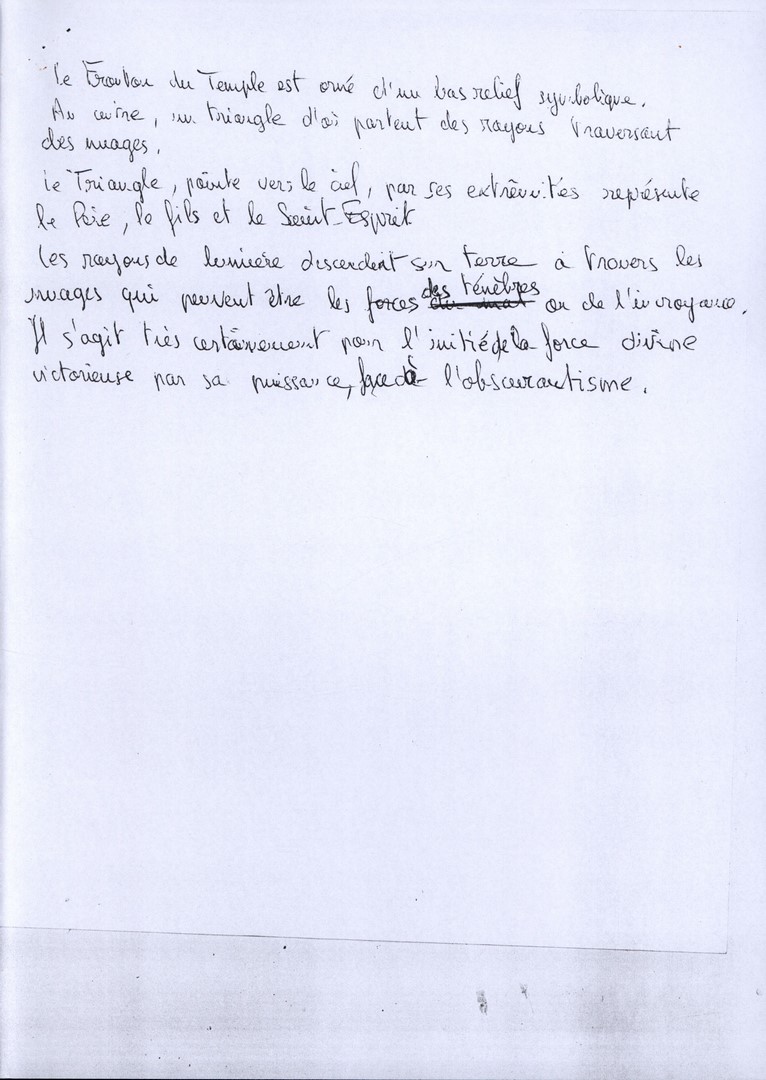 Le Fronton du Temple est orné d'un bas relief symbolique.
Au centre, un triangle d'où partent des rayons traversant
des nuages.
Le Triangle, pointe vers le ciel, par ses extrêmités représente
le Père, le fils et le Saint-Esprit
Les rayons de lumière descendent sur terre à travers les
nuages qui peuvent être les forces des ténèbres ou de l'incroyance.
Il s'agit très certainement pour l'initié de la force divine
victorieuse par sa puissance, face à l'obscurantisme.